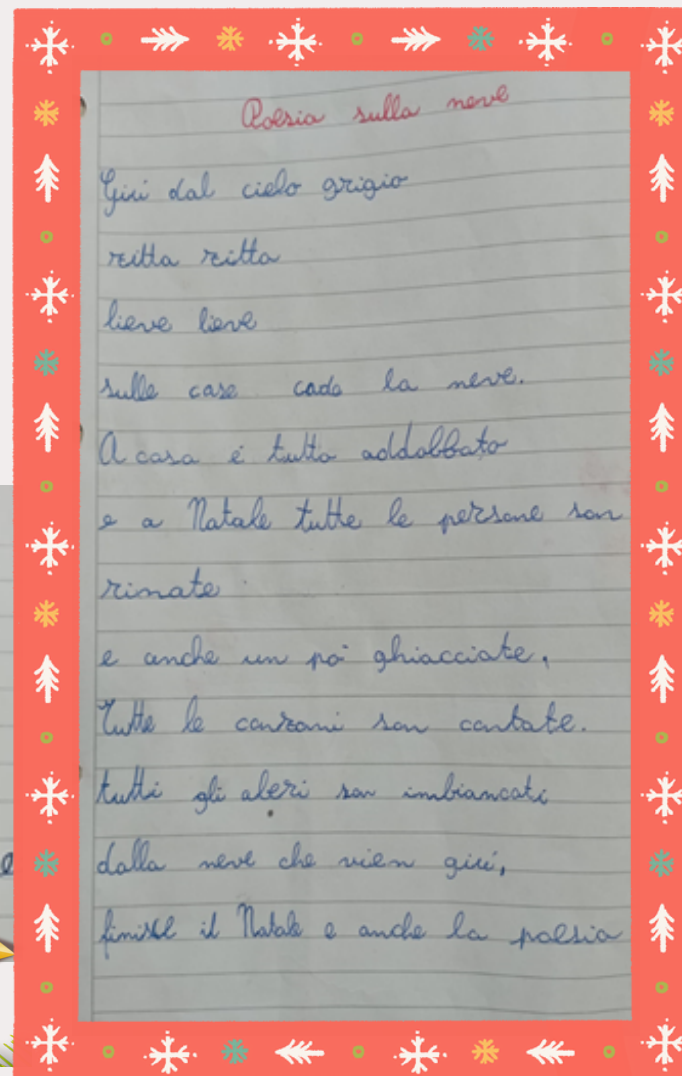 Poesia sulla neve
Giú dal cielo grigio
ritta ritta
lieve lieve
sulle case cade la neve.
A casa é tutto addobbato
e a Natale tutte le persone son
rinate
e anche un pó ghiacciate,
Tutte le canzoni son cantate.
tutti gli aleri son imbiancati
dalla neve che vien giú,
finisce il Natale e anche la poesia